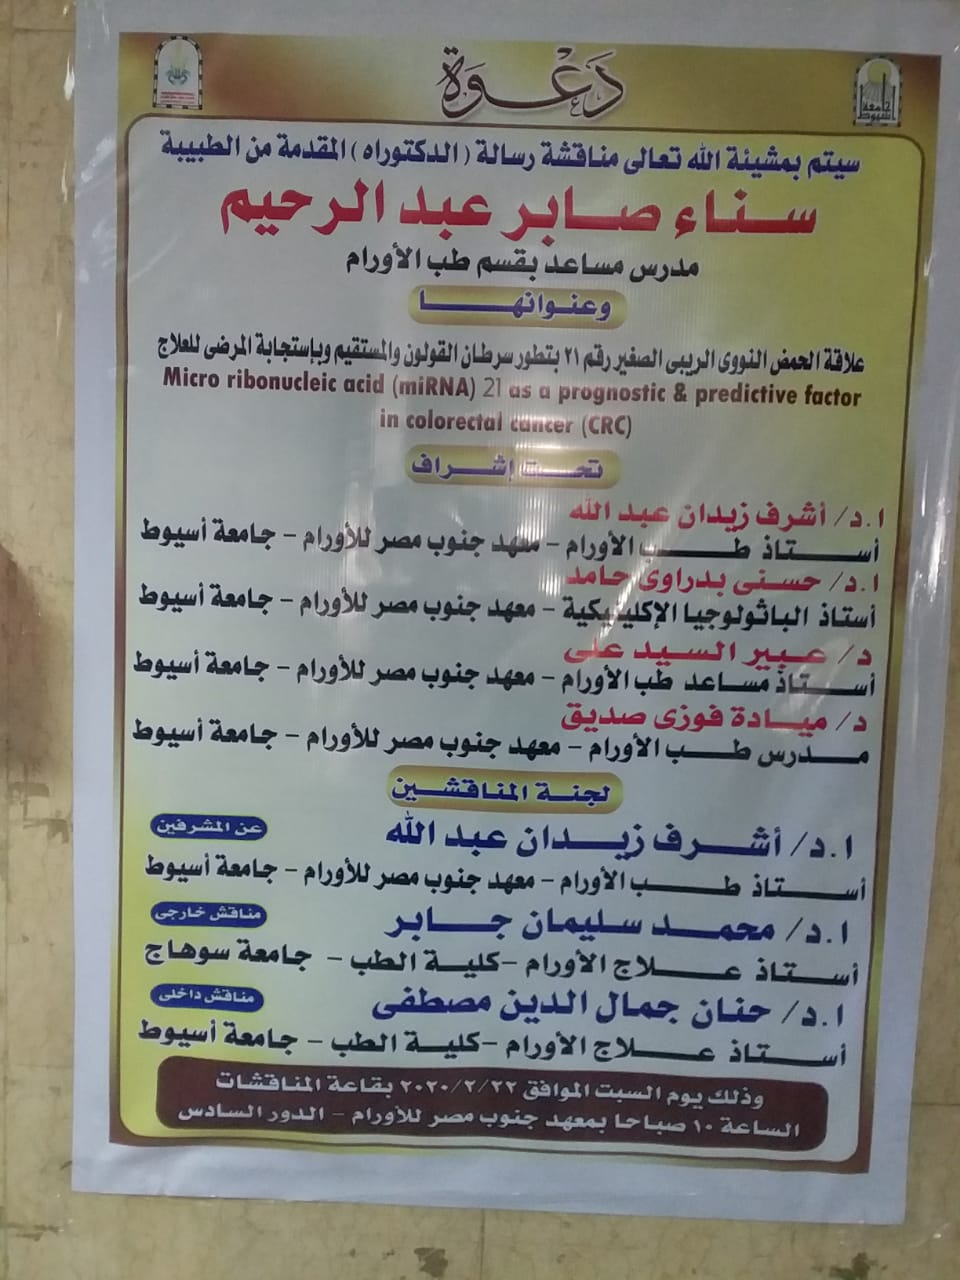 دَعْوَة
جامعة أسيوط
سيتم بمشيئة الله تعالى مناقشة رسالة ( الدكتوراه ) المقدمة من الطبيبة
سناء صابر عبد الرحيم
مدرس مساعد بقسم طب الأورام
وعنوانها
علاقة الحمض النووى الريبى الصغير رقم ٢١ بتطور سرطان القولون والمستقيم وبإستجابة المرضى للعلاج
Micro ribonucleic acid (miRNA) 21 as a prognostic & predictive factor
in colorectal cancer (CRC)
تحت إشراف
ا.د/ أشرف زيدان عبد الله
أستاذ طب الأورام - معهد جنوب مصر للأورام - جامعة أسيوط
ا.د/ حسنى بدراوى حامد
أستاذ الباثولوجيا الإكلينيكية - معهد جنوب مصر للأورام - جامعة أسيوط
د/ عبير السيد على
أستاذ مساعد طب الأورام - معهد جنوب مصر للأورام - جامعة أسيوط
د/ ميادة فوزى صديق
مدرس طب الأورام - معهد جنوب مصر للأورام - جامعة أسيوط
لجنة المناقشين
ا.د/ أشرف زيدان عبد الله عن المشرفين
أستاذ طب الأورام - معهد جنوب مصر للأورام - جامعة أسيوط
ا.د/ محمد سليمان جابر مناقش خارجى
أستاذ علاج الأورام -كلية الطب - جامعة سوهاج
ا.د/ حنان جمال الدين مصطفى مناقش داخلى
أستاذ علاج الأورام -كلية الطب - جامعة أسيوط
وذلك يوم السبت الموافق ٢٠٢٠/٢/٢٢ بقاعة المناقشات
الساعة ١٠ صباحا بمعهد جنوب مصر للأورام - الدور السادس